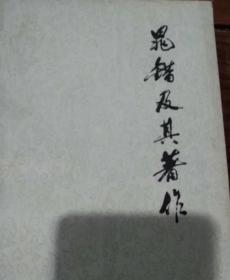 晁错及其著作